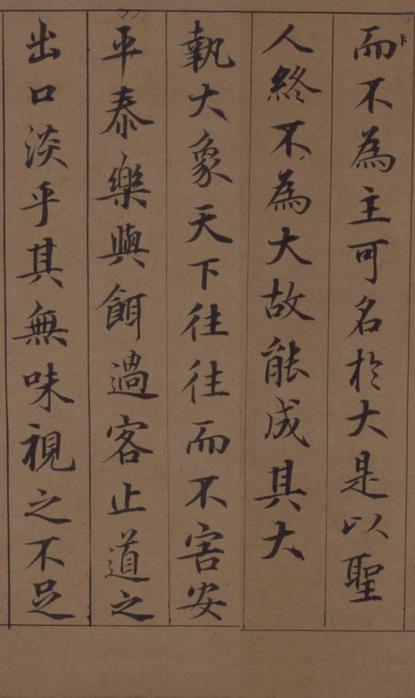 而不為主可名於大是以聖
人終不為大故能成其大
執大象天下往往而不害安
平泰樂與餌過客止道之
出口淡乎其無味視之不足